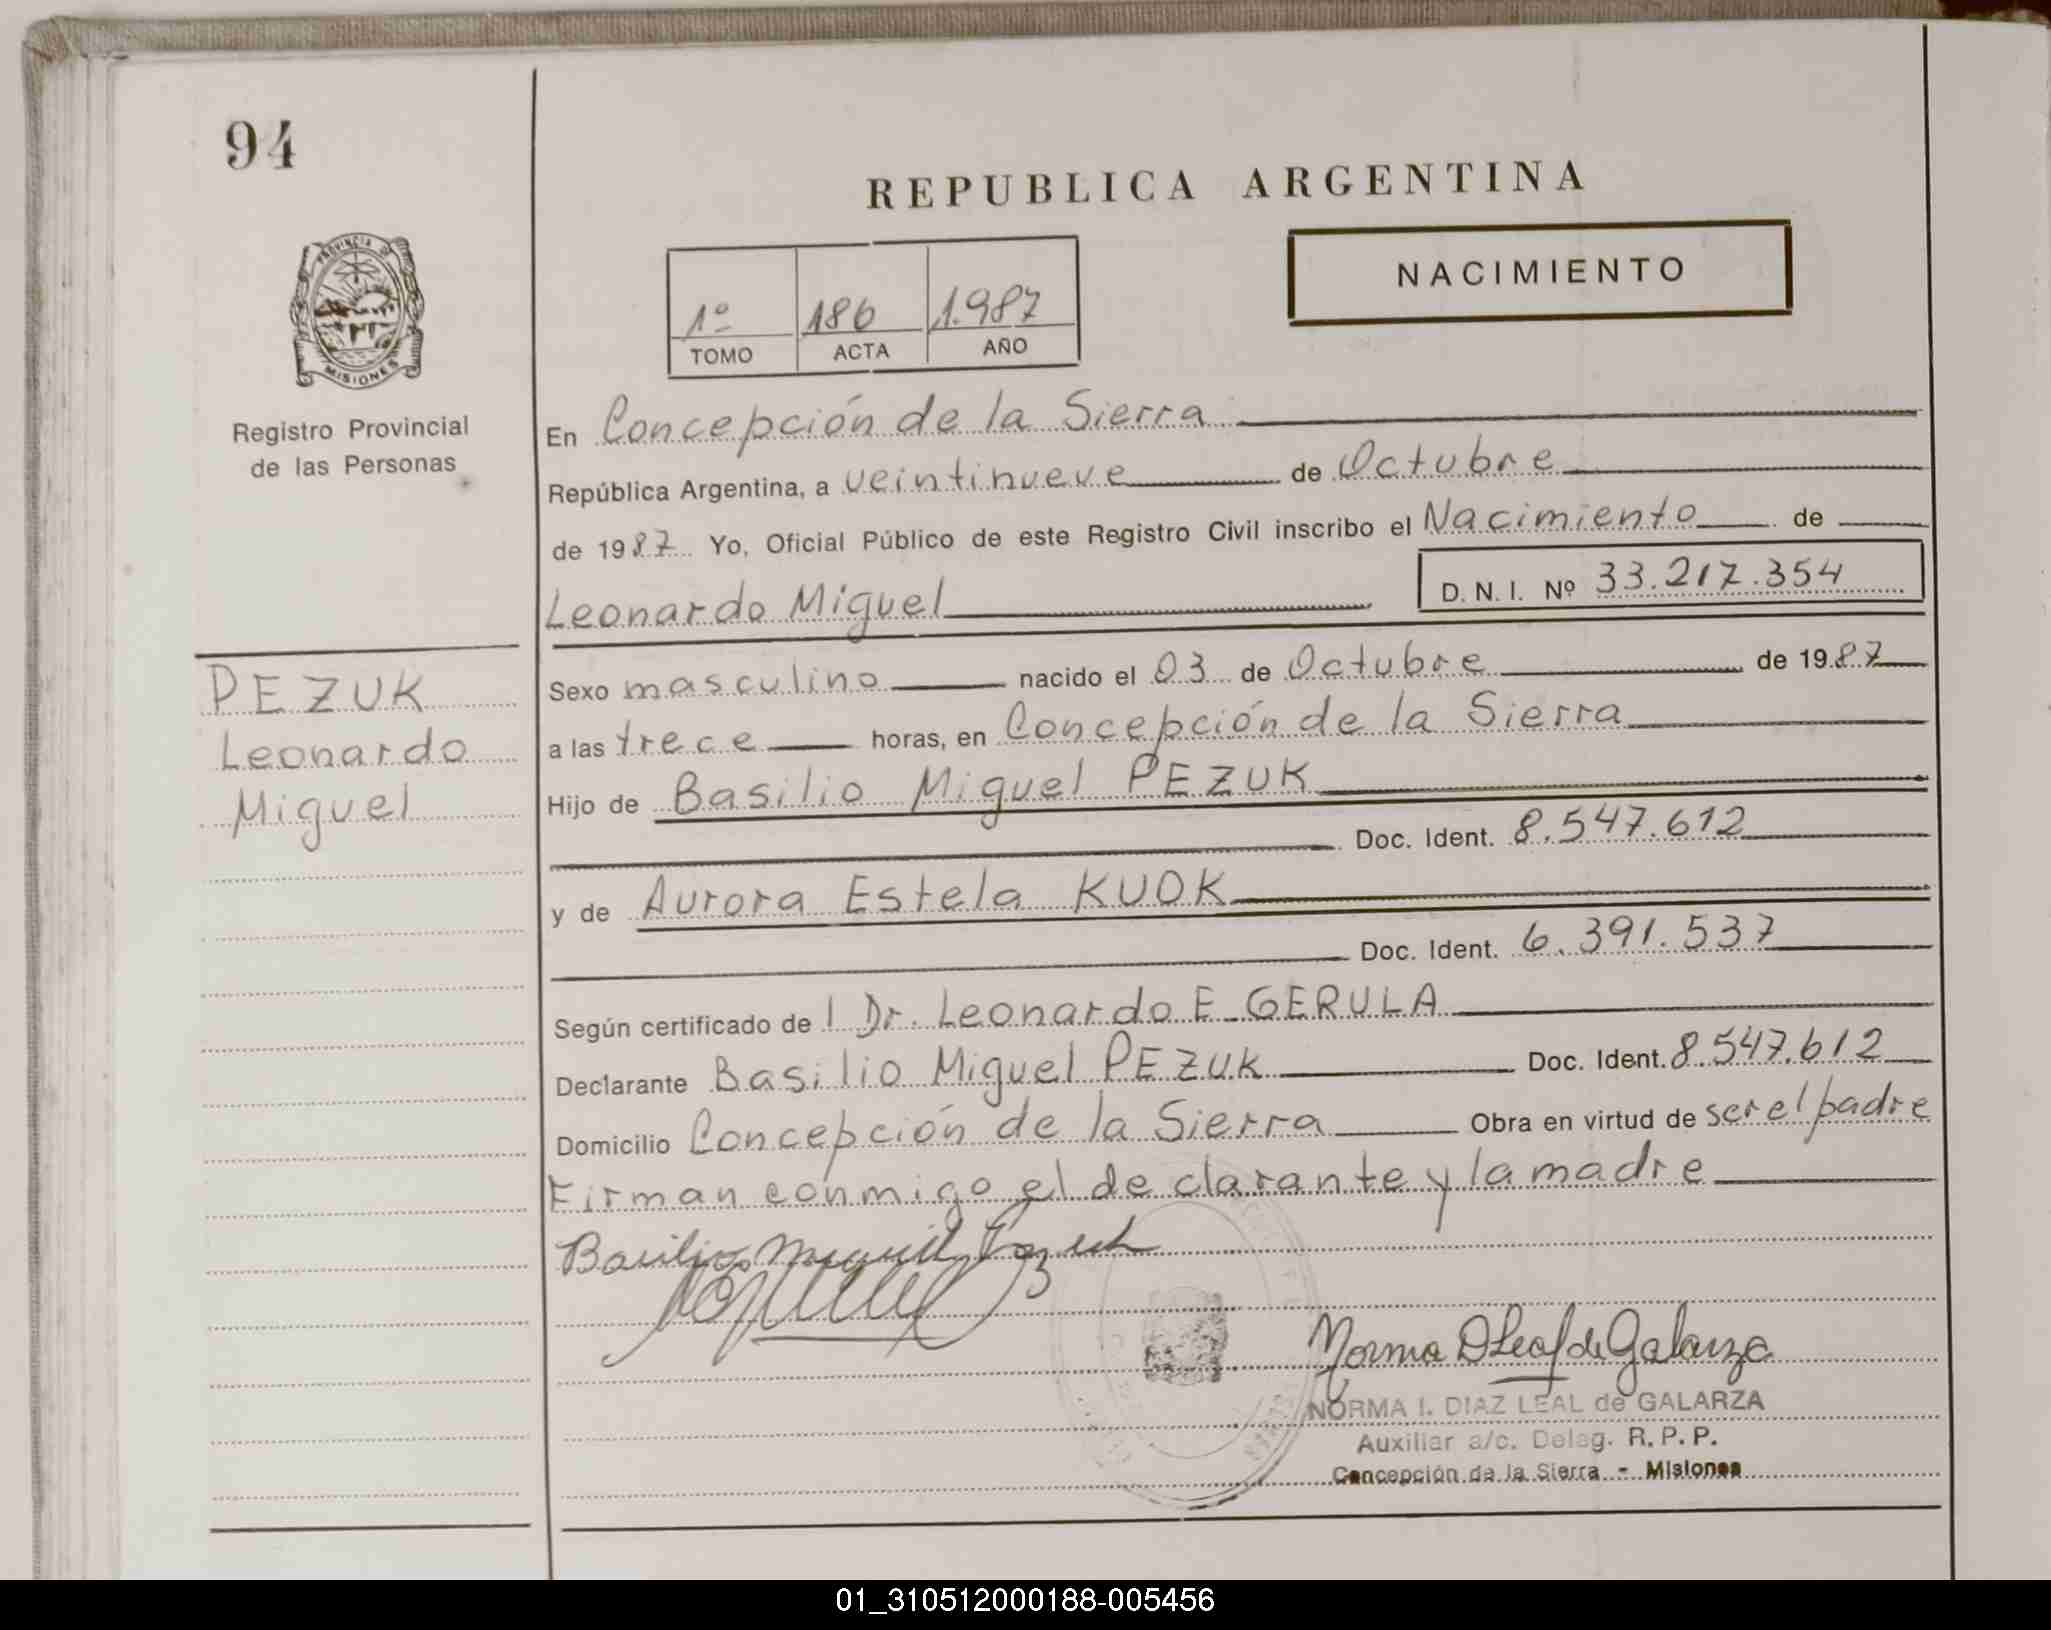 94
REPUBLICA ARGENTINA
NACIMIENTO
1º 186 1.987
TOMO ACTA AÑO
PROVINCIA DE
MISIONES
Registro Provincial
de las Personas
En Concepción de la Sierra
República Argentina, a veintinueve de Octubre
de 1987 Yo, Oficial Público de este Registro Civil inscribo el Nacimiento de
Leonardo Miguel D. N. I. Nº 33.217.354
PEZUK
Leonardo
Miguel
Sexo masculino nacido el 03 de Octubre de 1987
a las trece horas, en Concepción de la Sierra
Hijo de Basilio Miguel PEZUK
Doc. Ident. 8.547.612
y de Aurora Estela KUOK
Doc. Ident. 6.391.537
Según certificado de l Dr. Leonardo E. GERULA
Declarante Basilio Miguel PEZUK Doc. Ident. 8.547.612
Domicilio Concepción de la Sierra Obra en virtud de ser el padre
Firman conmigo el declarante y la madre
Basilio Miguel Pezuk
Norma D Leal de Galarza
NORMA I. DIAZ LEAL de GALARZA
Auxiliar a/c. Deleg. R. P. P.
Concepción de la Sierra - Misiones
01_310512000188-005456